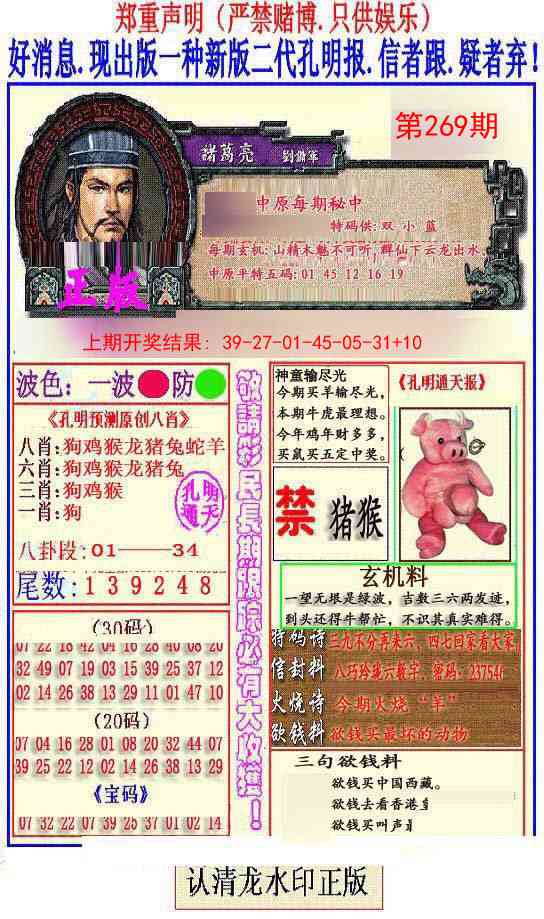 郑重声明（严禁赌博.只供娱乐）
好消息.现出版一种新版二代孔明报.信者跟.疑者弃！
第269期
諸葛亮 劉備軍
中原每期秘中
特码供:双 小 蓝
每期玄机:山精木魅不可听,群仙下云龙出水.
中原平特五码:01 45 12 16 19
正版
上期开奖结果: 39-27-01-45-05-31+10
波色: 一波 防
《孔明预测原创八肖》
八肖:狗鸡猴龙猪兔蛇羊
六肖:狗鸡猴龙猪兔
三肖:狗鸡猴
一肖:狗
孔明
通天
八卦段:01——34
尾数:139248
(30码)
07 22 18 42 04 16 28 40 08 20
32 49 07 19 03 15 39 25 37 12
02 14 26 38 13 29 11 01 47 10
(20码)
07 04 16 28 01 08 20 32 44 07
39 25 22 12 02 14 26 38 13 29
《宝码》
07 32 22 07 39 25 37 01 02 14
敬請彩民長期跟踪必有大收獲！
神童输尽光
今期买羊输尽光，
本期牛虎最理想。
今年鸡年财多多，
买鼠买五定中奖。
《孔明通天报》
禁
猪猴
玄机料
一望无垠是绿波，古数三六两发迹，
到头还得牛帮忙，不识其真实难得。
特码诗 三九不分再来六，四七回家看大家
信封料 八巧玲珑六数字，密码：23754
火烧诗 今期火烧“羊”
欲钱料 欲钱买最坏的动物
三句欲钱料
欲钱买中国西藏。
欲钱去看香港
欲钱买叫声
认清龙水印正版